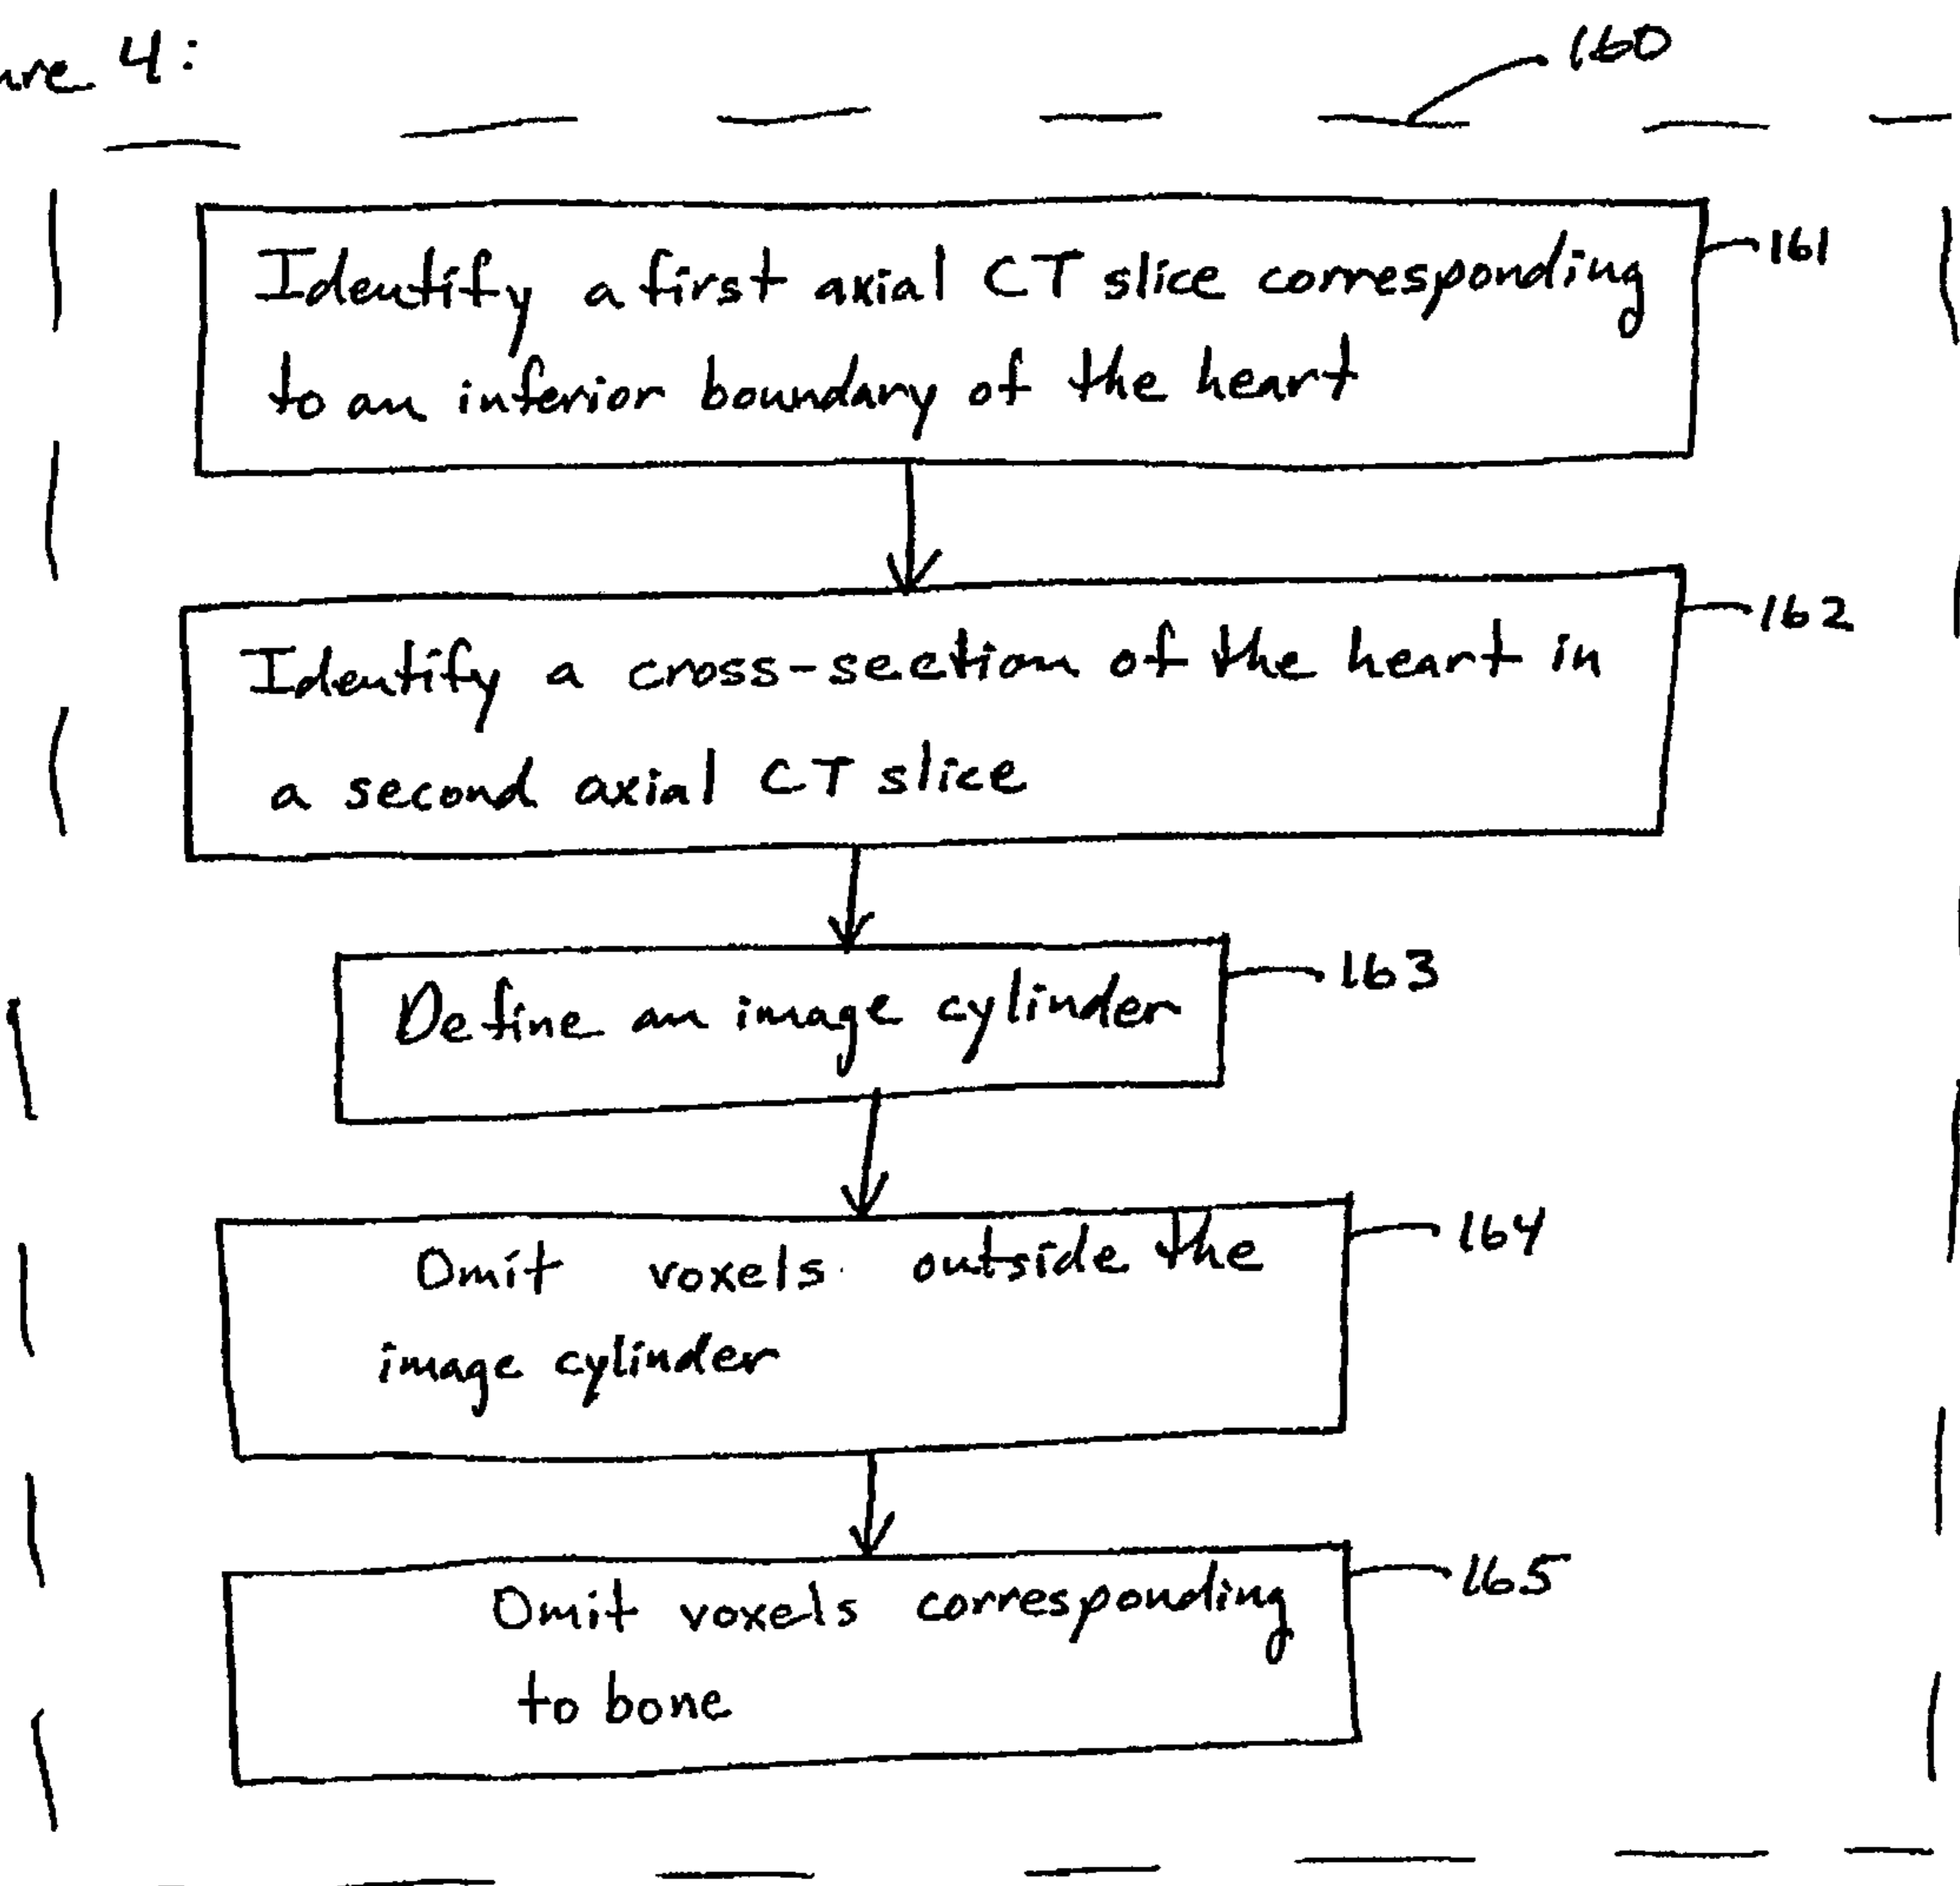 4:
160
Identify a first axial CT slice corresponding
to an inferior boundary of the heart
161
Identify a cross-section of the heart in
a second axial CT slice
162
Define an image cylinder
163
Omit voxels outside the
image cylinder
164
Omit voxels corresponding
to bone
165